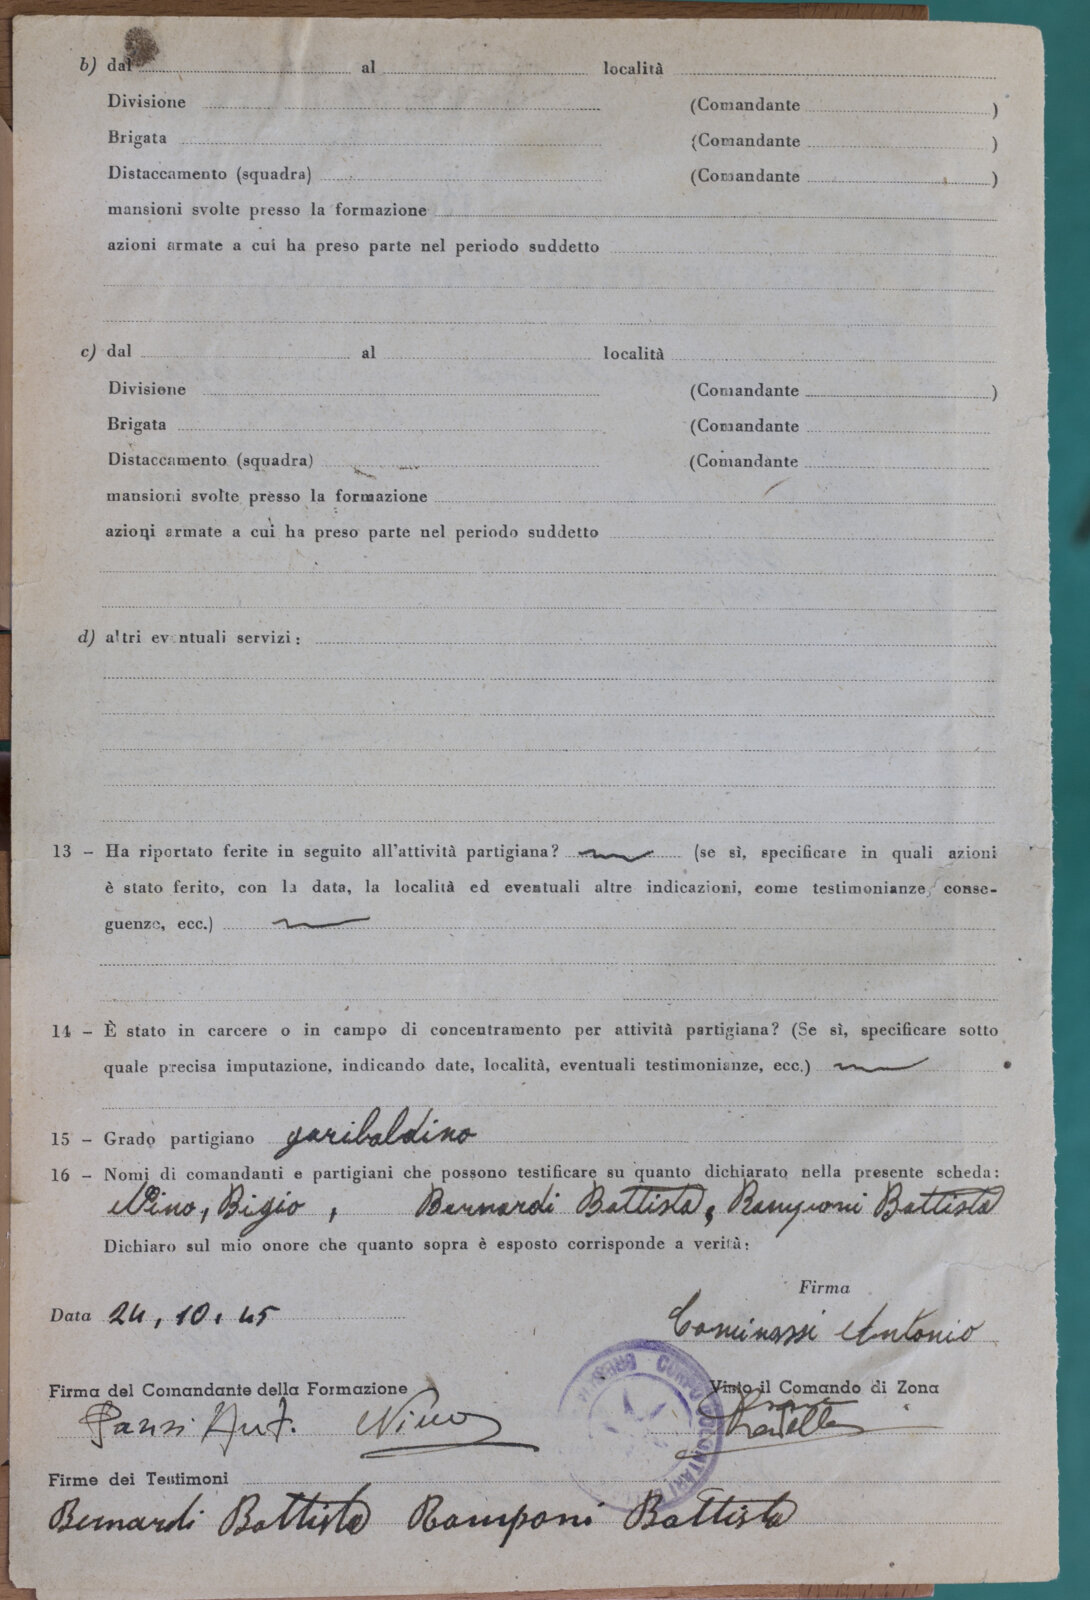 b) dal al località
Divisione (Comandante )
Brigata (Comandante )
Distaccamento (squadra) (Comandante )
mansioni svolte presso la formazione
azioni armate a cui ha preso parte nel periodo suddetto
c) dal al località
Divisione (Comandante )
Brigata (Comandante
Distaccamento (squadra) (Comandante
mansioni svolte presso la formazione
azioni armate a cui ha preso parte nel periodo suddetto
d) altri eventuali servizi:
13 – Ha riportato ferite in seguito all'attività partigiana? (se sì, specificare in quali azioni
è stato ferito, con la data, la località ed eventuali altre indicazioni, come testimonianze, conse-
guenze, ecc.)
14 – È stato in carcere o in campo di concentramento per attività partigiana? (Se sì, specificare sotto
quale precisa imputazione, indicando date, località, eventuali testimonianze, ecc.)
15 – Grado partigiano garibaldino
16 – Nomi di comandanti e partigiani che possono testificare su quanto dichiarato nella presente scheda:
Nino, Bigio, Bernardi Battista, Ramponi Battista
Dichiaro sul mio onore che quanto sopra è esposto corrisponde a verità:
Firma
Data 24.10.45
Cominassi Antonio
Firma del Comandante della Formazione Visto il Comando di Zona
Nino
CORPO VOLONTARI
Firme dei Testimoni
Bernardi Battista Ramponi Battista